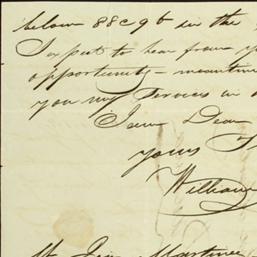 below 88 c 9 b in the
I expect to hear from y
opportunity – meantime
you my Services in a
I am Dear
yours
William